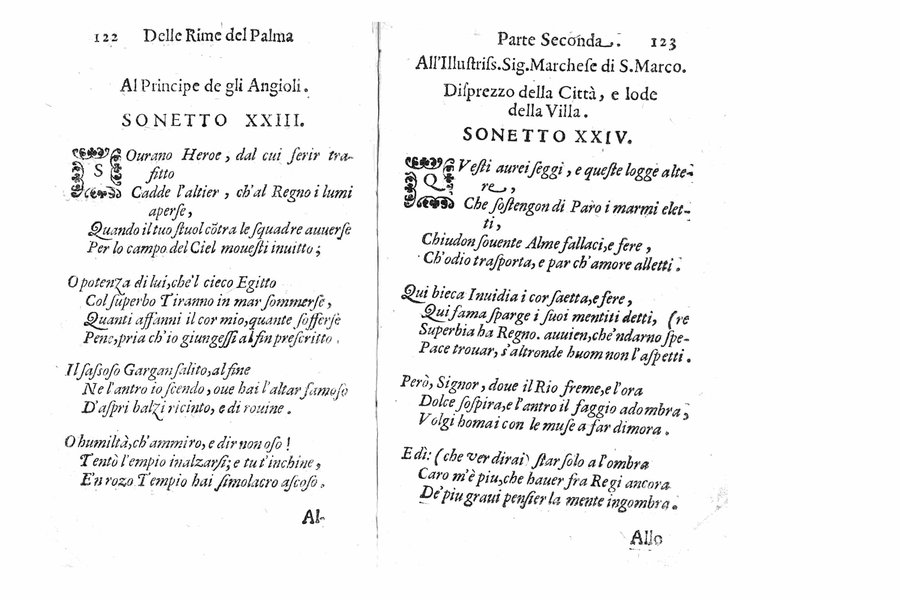 122 Delle Rime del Palma
Al Principe de gli Angioli.
SONETTO XXIII.
SOurano Heroe, dal cui ferir tra-
fitto
Cadde l'altier, ch'al Regno i lumi
aperse,
Quando il tuo stuol cõtra le squadre auuerse
Per lo campo del Ciel mouesti inuitto;
O potenza di lui, che'l cieco Egitto
Col superbo Tiranno in mar sommerse,
Quanti affanni il cor mio, quante sofferse
Pene, pria ch'io giungessi al fin prescritto.
Il sassoso Gargan salito, al fine
Ne l'antro io scendo, oue hai l'altar famoso
D'aspri balzi ricinto, e di rouine.
O humiltà, ch'ammiro, e dir non oso!
Tentò l'empio inalzarsi; e tu t'inchine,
E'n rozo Tempio hai simolacro ascoso.
Al-
Parte Seconda. 123
All'Illustriss. Sig. Marchese di S. Marco.
Disprezzo della Città, e lode
della Villa.
SONETTO XXIV.
QVesti aurei seggi, e queste logge alte-
re,
Che sostengon di Paro i marmi elet-
ti,
Chiudon souente Alme fallaci, e fere,
Ch'odio trasporta, e par ch'amore alletti.
Qui bieca Inuidia i cor saetta, e fere,
Qui fama sparge i suoi mentiti detti, (re
Superbia ha Regno. auuien, che'ndarno spe-
Pace trouar, s'altronde huom non l'aspetti.
Però, Signor, doue il Rio freme, e l'ora
Dolce sospira, e l'antro il faggio adombra,
Volgi homai con le muse a far dimora.
E di: (che ver dirai) star solo a l'ombra
Caro m'è piu, che hauer fra Regi ancora
De' piu graui pensier la mente ingombra.
Allo